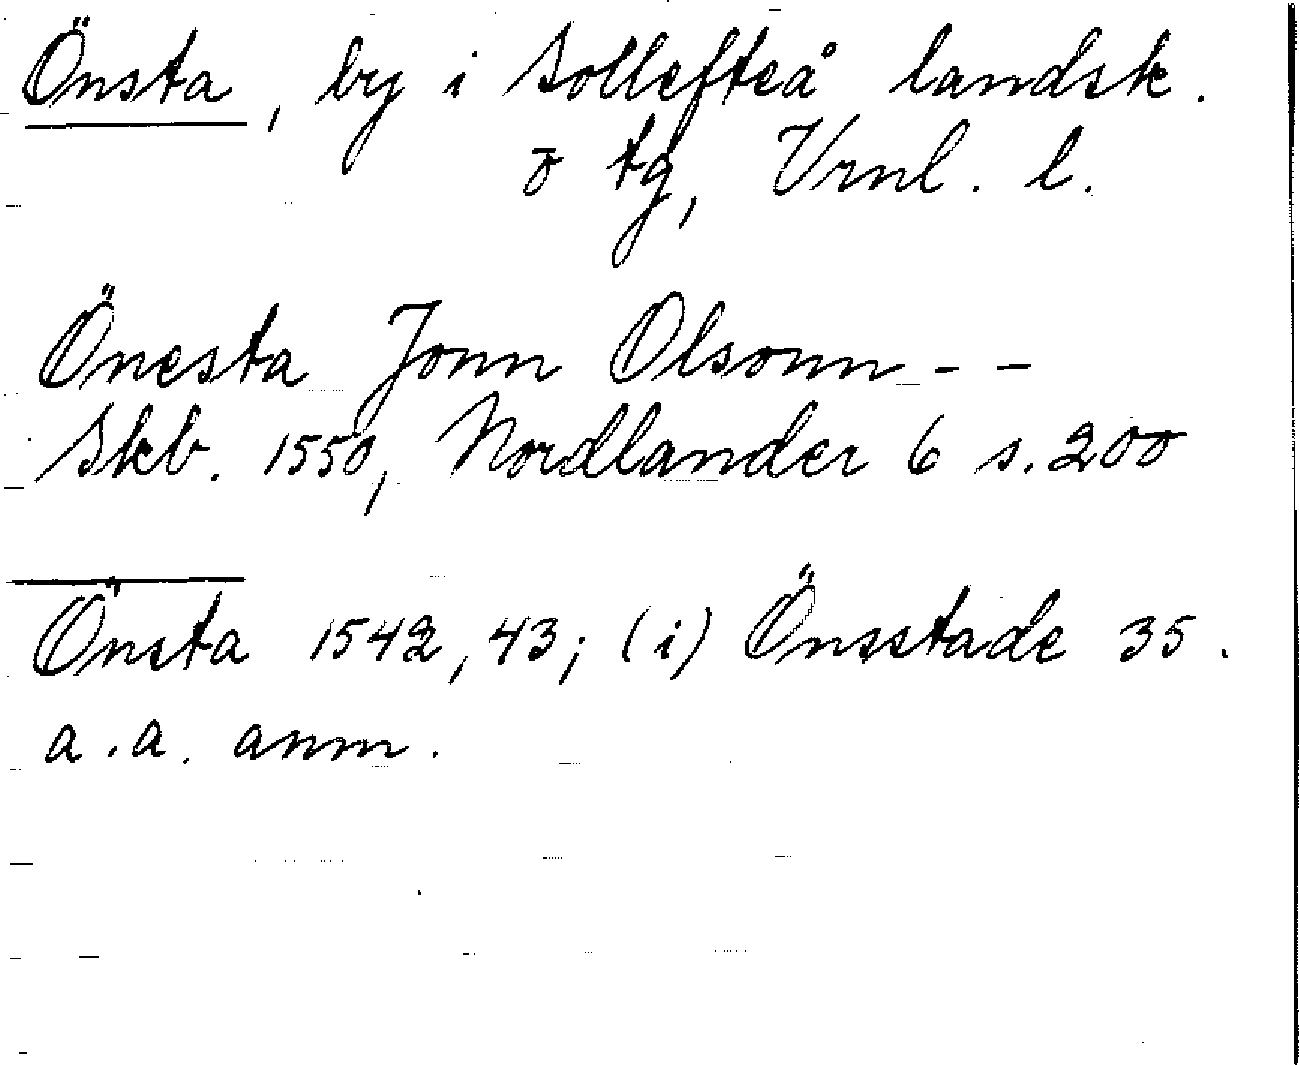 Önsta, by i Sollefteå landsk.
o tg, Vrnl. l.
Önesta Jonn Olsonn - -
Skb. 1550, Nordlander 6 s. 200
Önsta 1542, 43; (i) Önsstade 35.
a.a. anm.